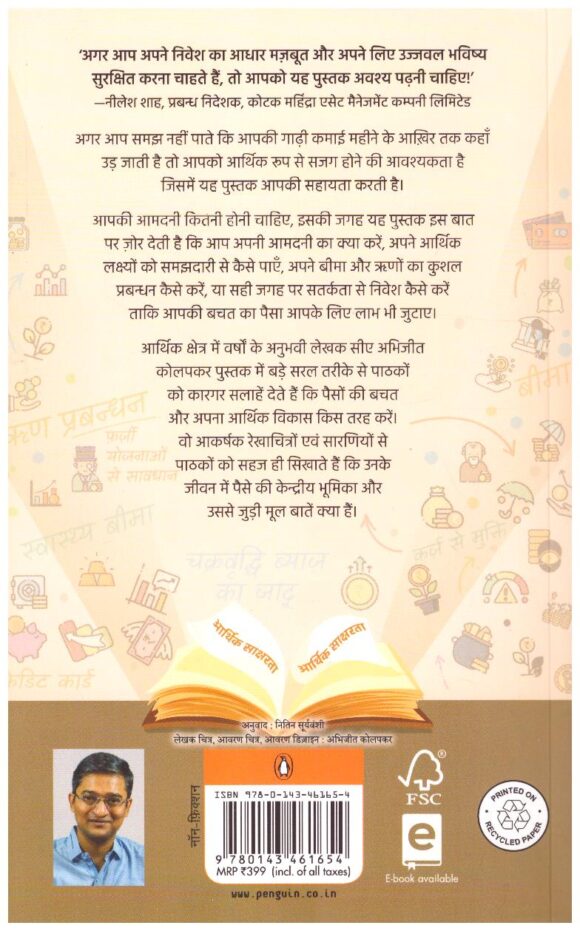 ‘अगर आप अपने निवेश का आधार मज़बूत और अपने लिए उज्जवल भविष्य
सुरक्षित करना चाहते हैं, तो आपको यह पुस्तक अवश्य पढ़नी चाहिए!’
—नीलेश शाह, प्रबन्ध निदेशक, कोटक महिंद्रा एसेट मैनेजमेंट कम्पनी लिमिटेड
अगर आप समझ नहीं पाते कि आपकी गाढ़ी कमाई महीने के आख़िर तक कहाँ
उड़ जाती है तो आपको आर्थिक रूप से सजग होने की आवश्यकता है
जिसमें यह पुस्तक आपकी सहायता करती है।
आपकी आमदनी कितनी होनी चाहिए, इसकी जगह यह पुस्तक इस बात
पर ज़ोर देती है कि आप अपनी आमदनी का क्या करें, अपने आर्थिक
लक्ष्यों को समझदारी से कैसे पाएँ, अपने बीमा और ऋणों का कुशल
प्रबन्धन कैसे करें, या सही जगह पर सतर्कता से निवेश कैसे करें
ताकि आपकी बचत का पैसा आपके लिए लाभ भी जुटाए।
आर्थिक क्षेत्र में वर्षों के अनुभवी लेखक सीए अभिजीत
कोलपकर पुस्तक में बड़े सरल तरीके से पाठकों
को कारगर सलाहें देते हैं कि पैसों की बचत
और अपना आर्थिक विकास किस तरह करें।
वो आकर्षक रेखाचित्रों एवं सारणियों से
पाठकों को सहज ही सिखाते हैं कि उनके
जीवन में पैसे की केन्द्रीय भूमिका और
उससे जुड़ी मूल बातें क्या हैं।
बीमा
ऋण प्रबन्धन
फ़र्ज़ी
योजनाओं
से सावधान
स्वास्थ्य बीमा
कर्ज से मुक्ति
चक्रवृद्धि ब्याज
का जादू
क्रेडिट कार्ड
आर्थिक साक्षरता
आर्थिक साक्षरता
अनुवाद : नितिन सूर्यवंशी
लेखक चित्र, आवरण चित्र, आवरण डिज़ाइन : अभिजीत कोलपकर
नॉन-फ़िक्शन
ISBN 978-0-143-46165-4
9 780143 461654
MRP ₹399 (incl. of all taxes)
www.penguin.co.in
FSC
e
E-book available
PRINTED ON
RECYCLED PAPER